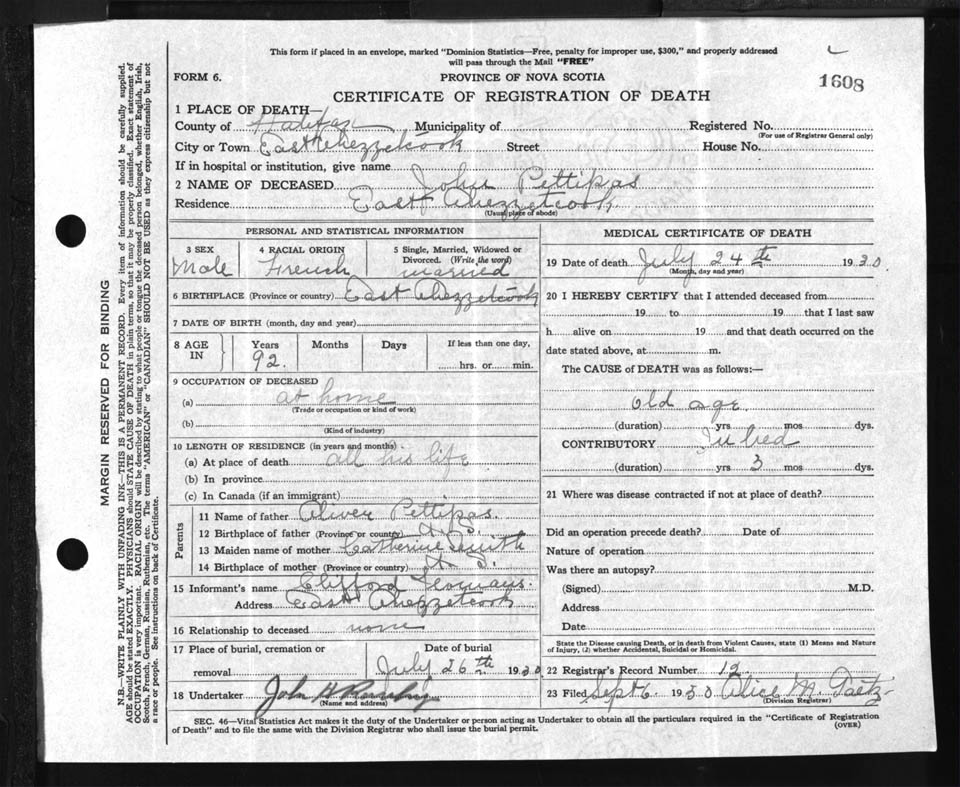 This form if placed in an envelope, marked "Dominion Statistics—Free, penalty for improper use, $300," and properly addressed
will pass through the Mail "FREE"
FORM 6. PROVINCE OF NOVA SCOTIA
1608
CERTIFICATE OF REGISTRATION OF DEATH
1 PLACE OF DEATH—
County of Halifax Municipality of Registered No.
(For use of Registrar General only)
City or Town East Chezzetcook Street House No.
If in hospital or institution, give name
2 NAME OF DECEASED John Pettipas
Residence East Chezzetcook
(Usual place of abode)
PERSONAL AND STATISTICAL INFORMATION
3 SEX 4 RACIAL ORIGIN 5 Single, Married, Widowed or
Divorced. (Write the word)
Male French married
6 BIRTHPLACE (Province or country) East Chezzetcook
7 DATE OF BIRTH (month, day and year)
8 AGE IN Years Months Days If less than one day,
92. hrs. or min.
9 OCCUPATION OF DECEASED
(a) at home
(Trade or occupation or kind of work)
(b)
(Kind of industry)
10 LENGTH OF RESIDENCE (in years and months)
(a) At place of death all his life
(b) In province
(c) In Canada (if an immigrant)
Parents
11 Name of father Oliver Pettipas
12 Birthplace of father (Province or country) N. S.
13 Maiden name of mother Catherine Smith
14 Birthplace of mother (Province or country) N. S.
15 Informant's name Clifford
Address East Chezzetcook
16 Relationship to deceased none
17 Place of burial, cremation or Date of burial
removal July 26th 1930
18 Undertaker John H
(Name and address)
MEDICAL CERTIFICATE OF DEATH
19 Date of death July 24th 1930.
(Month, day and year)
20 I HEREBY CERTIFY that I attended deceased from
19 to 19 that I last saw
h alive on 19 and that death occurred on the
date stated above, at m.
The CAUSE of DEATH was as follows:—
old age
(duration) yrs mos dys.
CONTRIBUTORY In bed
(duration) yrs 3 mos dys.
21 Where was disease contracted if not at place of death?
Did an operation precede death? Date of
Nature of operation
Was there an autopsy?
(Signed) M.D.
Address
Date
State the Disease causing Death, or in death from Violent Causes, state (1) Means and Nature
of Injury, (2) whether Accidental, Suicidal or Homicidal.
22 Registrar's Record Number 12
23 Filed Sept 6 1930 Alice M. Gaetz
(Division Registrar)
SEC. 46—Vital Statistics Act makes it the duty of the Undertaker or person acting as Undertaker to obtain all the particulars required in the "Certificate of Registration
of Death" and to file the same with the Division Registrar who shall issue the burial permit.
(OVER)
MARGIN RESERVED FOR BINDING
N.B.—WRITE PLAINLY WITH UNFADING INK—THIS IS A PERMANENT RECORD. Every item of information should be carefully supplied.
AGE should be stated EXACTLY. PHYSICIANS should STATE CAUSE OF DEATH in plain terms, so that it may be properly classified. Exact statement of
OCCUPATION is very important. RACIAL ORIGIN will be described by stating to what people or tongue the deceased person belonged, whether English, Irish,
Scotch, French, German, Russian, Ruthenian, etc. The terms "AMERICAN" or "CANADIAN" SHOULD NOT BE USED as they express citizenship but not
a race or people. See instructions on back of Certificate.